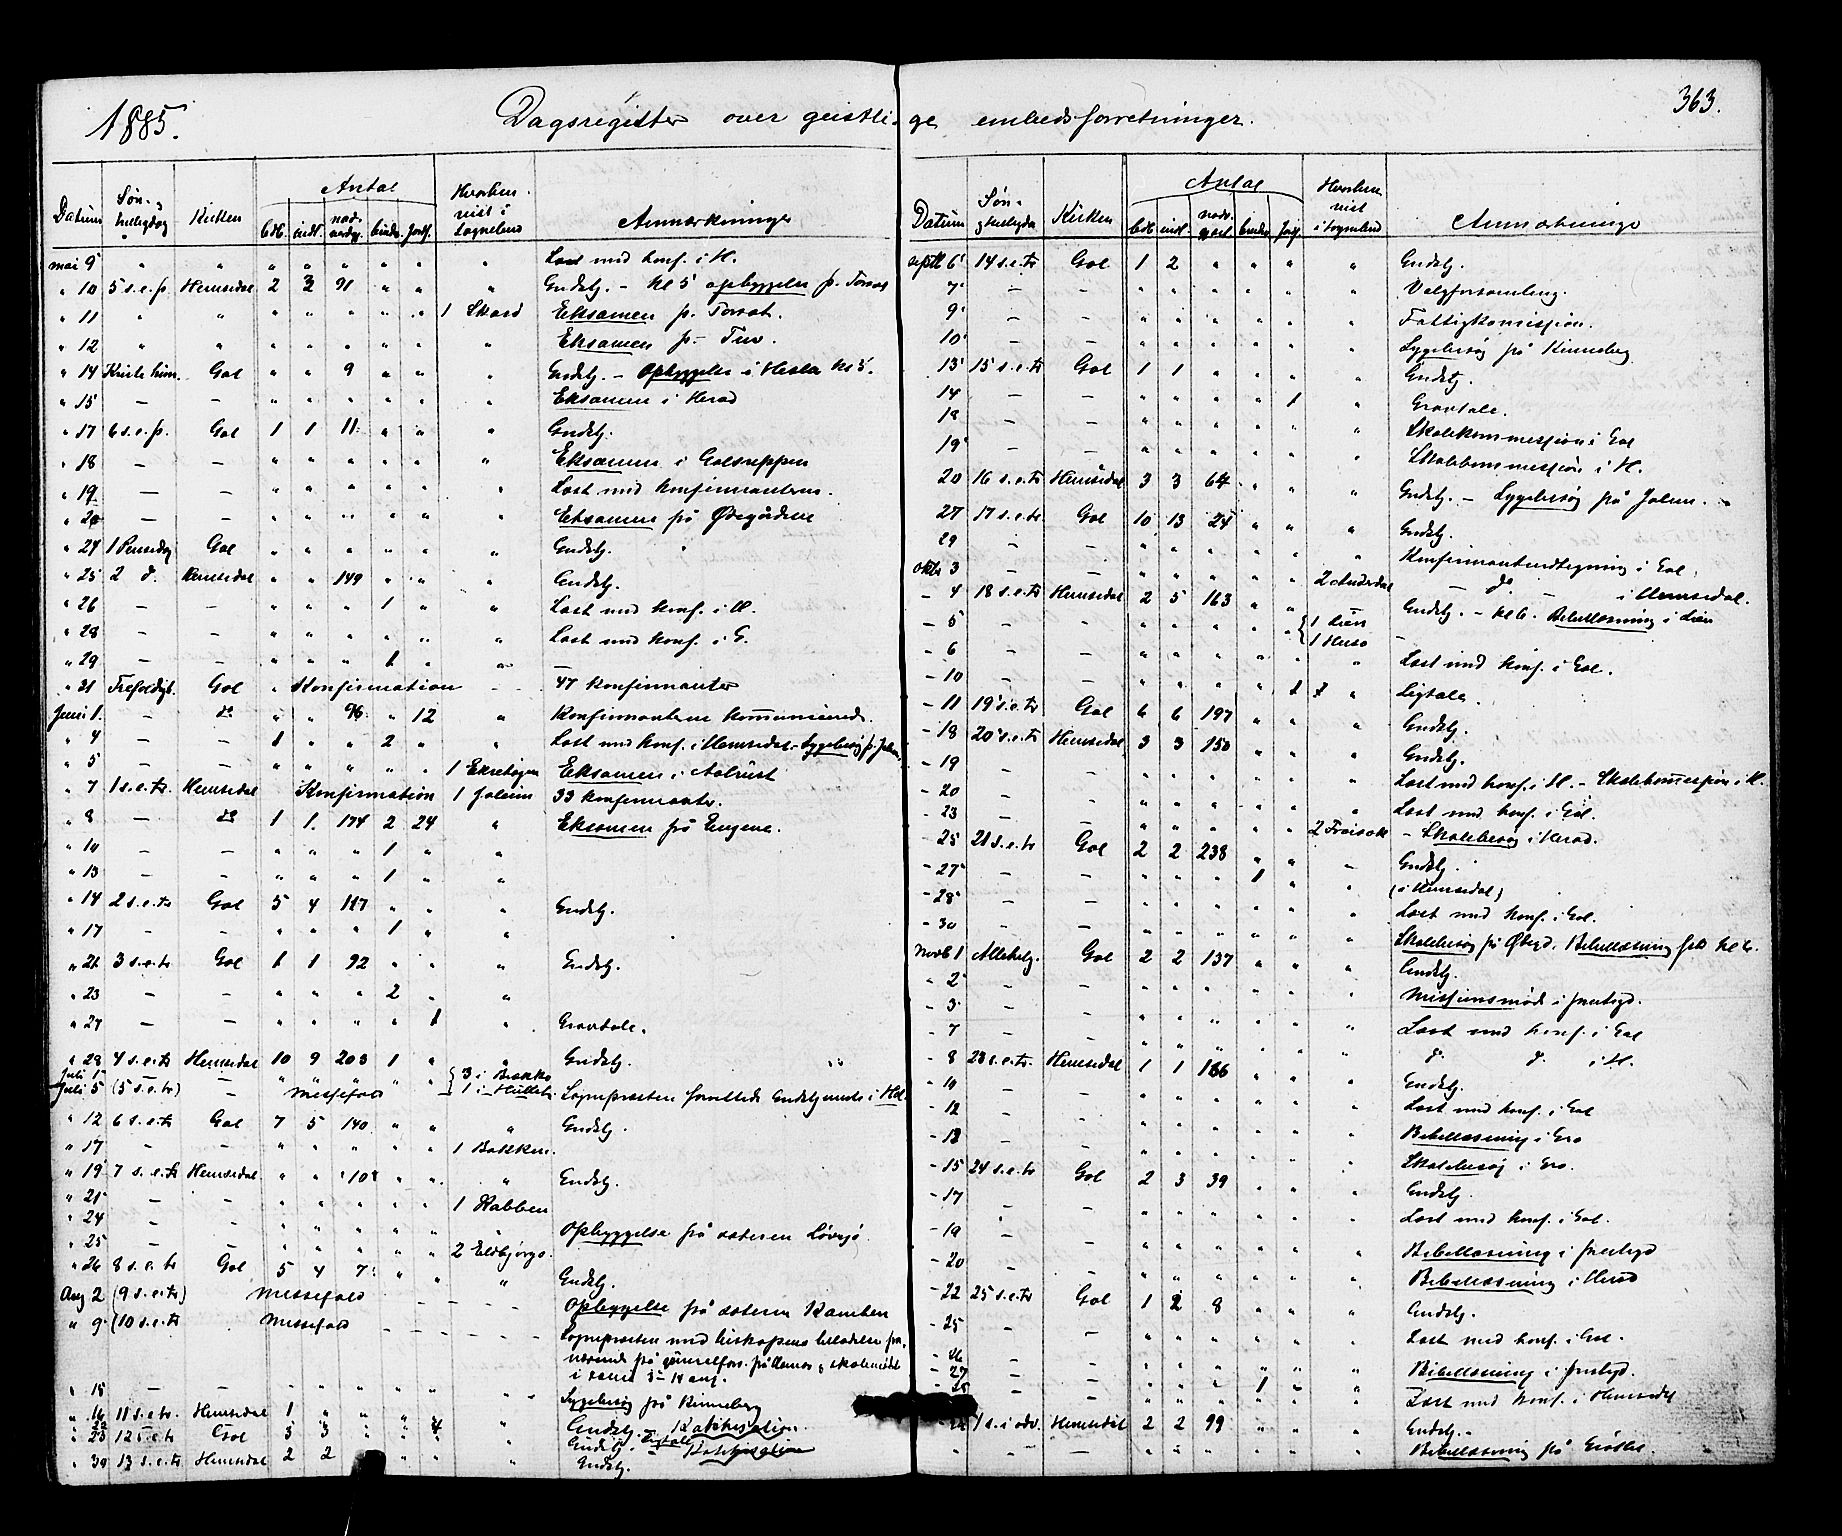 1885.
Dagsregister over geistlige embedsforretninger.
363.
Datum Søn- & helligdag Kirken Antal Hvorhen vist i Sognebud Anmærkninger
mai 9 " " " " " " " " Læst med konf. i H.
" 10 5 s.e.p. Hemsedal 2 3 91 " " " Gudstj. - Kl 5 opbyggelse p.
" 11 " " " " " " " 1 Skard Eksamen p.
" 12 " " " " " " " " Eksamen p. Tuv.
" 14 Kristi him. Gol " " 9 " " " Gudstj. - Opbyggelse i Hesla kl 5.
" 15 - - " " " " " " Eksamen i Herad
" 17 6 s.e.p. Gol 1 1 11 " " " Gudstj.
" 18 - - " " " " " " Eksamen i Golsreppen
" 19 - - " " " " " Læst med konfirmanterne.
" 20 - - " " " " " Eksamen på Øtegårdene
" 24 1 Pinsedag Gol " " " " " " Gudstj.
" 25 2 d. Hemsedal " " 149 " " " Gudstj.
" 26 - - " " " 1 " " Læst med konf. i H.
" 28 - - " " " " " " Læst med konf. i G.
" 29 - - " " " 1 " " -
" 31 Trefoldigh. Gol " Konfirmation - - 47 konfirmanter
Juni 1. - do " " 96 " 12 " Konfirmanterne kommunicerede.
" 4 - - 1 " " 2 " " Læst med konf. i Hemsedal - Sygebesøg p.
" 5 - - " " " " " 1 Eksamen i Aalrust
" 7 1 s.e.tr. Hemsedal Konfirmation 1 33 konfirmanter.
" 8 - do 1 1. 174 2 24 " Eksamen på Eugene.
" 10 - - " " " 1 " "
" 13 - - " " " 1 " "
" 14 2 s.e.tr Gol 5 4 127 " " " Gudstj.
" 17 - - " " " 1 " "
" 21 3 s.e.tr Gol 1 1 92 " " " Gudstj.
" 23 - - " " " 2 " "
" 27 - - " " " " 1 " Gravtale.
" 28 4 s.e.tr Hemsedal 10 9 203 1 " " Gudstj.
Juli 1 - " " " " " 3 i Bekko
Juli 5 (5 s.e.tr) - Messefald 1 i Sognepresten forrettede Gudstjeneste i Hol.
" 12 6 s.e.tr Gol 7 5 140 " " " Gudstj.
" 17 - - " " " " " 1 Bakken.
" 19 7 s.e.tr Hemsedal " " 108 " " " Gudstj.
" 21 - - " " " " " 1 Rabben
" 24 - - " " " " " " Opbyggelse på sæteren
" 25 - - " " " " " 2 Eldbjørgs.
" 26 8 s.e.tr Gol 5 4 7 " " " Gudstj.
Aug 2 (9 s.e.tr) Messefald - - - - Opbyggelse på sæteren
" 9 (10 s.e.tr Messefald - - - - - Sognepresten med biskopens tilladelse fra-
værende på på Hamar & skolemødet
i samme
" 15 - - " " " " " " Sygebesøg på Kinneberg
" 16 11 s.e.tr. Hemsedal 1 " " " " " Gudstj. Katekisation.
" 23 12 s.e.tr Gol 3 3 " " 4 " Gudstj. Katekisation
" 30 13 s.e.tr Hemsedal 2 2 " " " Gudstj.
Datum Søn- & helligda Kirken Antal Hvorhen vist i sognebud Anmærkninge
septb 6 14 s.e.tr Gol 1 2 " " " " Gudstj.
7 - - " " " " " " Valgforsamling.
9 - - " " " " " " Fattigkomission.
10 - - " " " " " " Sygebesøg på Kinneberg
13 15 s.e.tr Gol 1 1 " " " " Gudstj.
14 - - " " " " 1 " Gravtale.
18 - - " " " " " " Skolekommission i Gol
19 - - " " " " " " Skolekommission i H.
20 16 s.e.tr Hemsedal 3 3 64 " " " Gudstj. - Sygebesøg på
27 17 s.e.tr. Gol 10 13 24 " " " Gudstj.
29 - - " " " " " " Konfirmantudtegning i Gol
oktb 3 - - " " " " " 2 - do - i Hemsedal.
- 4 18 s.e.tr Hemsedal 2 5 163 " " " Gudstj. - kl 6. Bibellæsning i Lien
- 5 - - " " " " " { 1 Lien
1 Huso -
- 6 - - " " " " " " Læst med konf. i Gol.
- 10 - - " " " " 1 " Ligtale.
- 11 19 s.e.tr Gol 6 6 197 " " " Gudstj.
- 18 20 s.e.tr Hemsedal 3 3 150 " " " Gudstj.
- 19 - - " " " " " " Læst med konf. i H. - Skolekommission i H.
- 20 - - " " " " " " Læst med konf. i Gol.
- 23 - - " " " " " 2 Froisok - Skolebesøg i Herad.
- 25 21 s.e.tr Gol 2 2 238 " " - Gudstj.
- 27 - - " " " 1 " " (i Hemsedal)
- 28 - - " " " " " " Læst med konf. i Gol.
- 30 - - " " " " " " Skolebesøg på Øtegd. Bibellæsning kl 6.
Novb 1 Allehelg. Gol 2 2 137 " " " Gudstj.
" 2 - - " " " " " " Missionsmøde i prestegd.
- 3 - - " " " " " " Læst med konf. i Gol
- 7 - - " " " " " " d. d. i H.
- 8 23 s.e.tr. Hemsedal 1 1 166 " " " Gudstj.
- 10 - - " " " " " " Læst med konf. i Gol
- 12 - - " " " " " " Bibellæsning i Gro
- 13 - - " " " " " " Skolebesøg i Gro.
- 15 24 s.e.tr Gol 2 3 39 " " " Gudstj.
- 17 - - " " " " " " Læst med konf. i Gol.
- 19 - - " " " " " " Bibellæsning i prestegd
- 20 - - " " " " " " Bibellæsning i Herad
- 22 25 s.e.tr Gol 1 2 8 " " " Gudstj.
- 25 - - " " " " " " Læst med konf. i Gol.
- 26 - - " " " " " " Bibellæsning i prestegd.
- 27
- 28 - - " " " 1 " " Læst med konf. i Hemsedal
1 s. i adv. Hemsedal 2 2 99 " " " Gudstj.
" " " " " " " Bibellæsning på